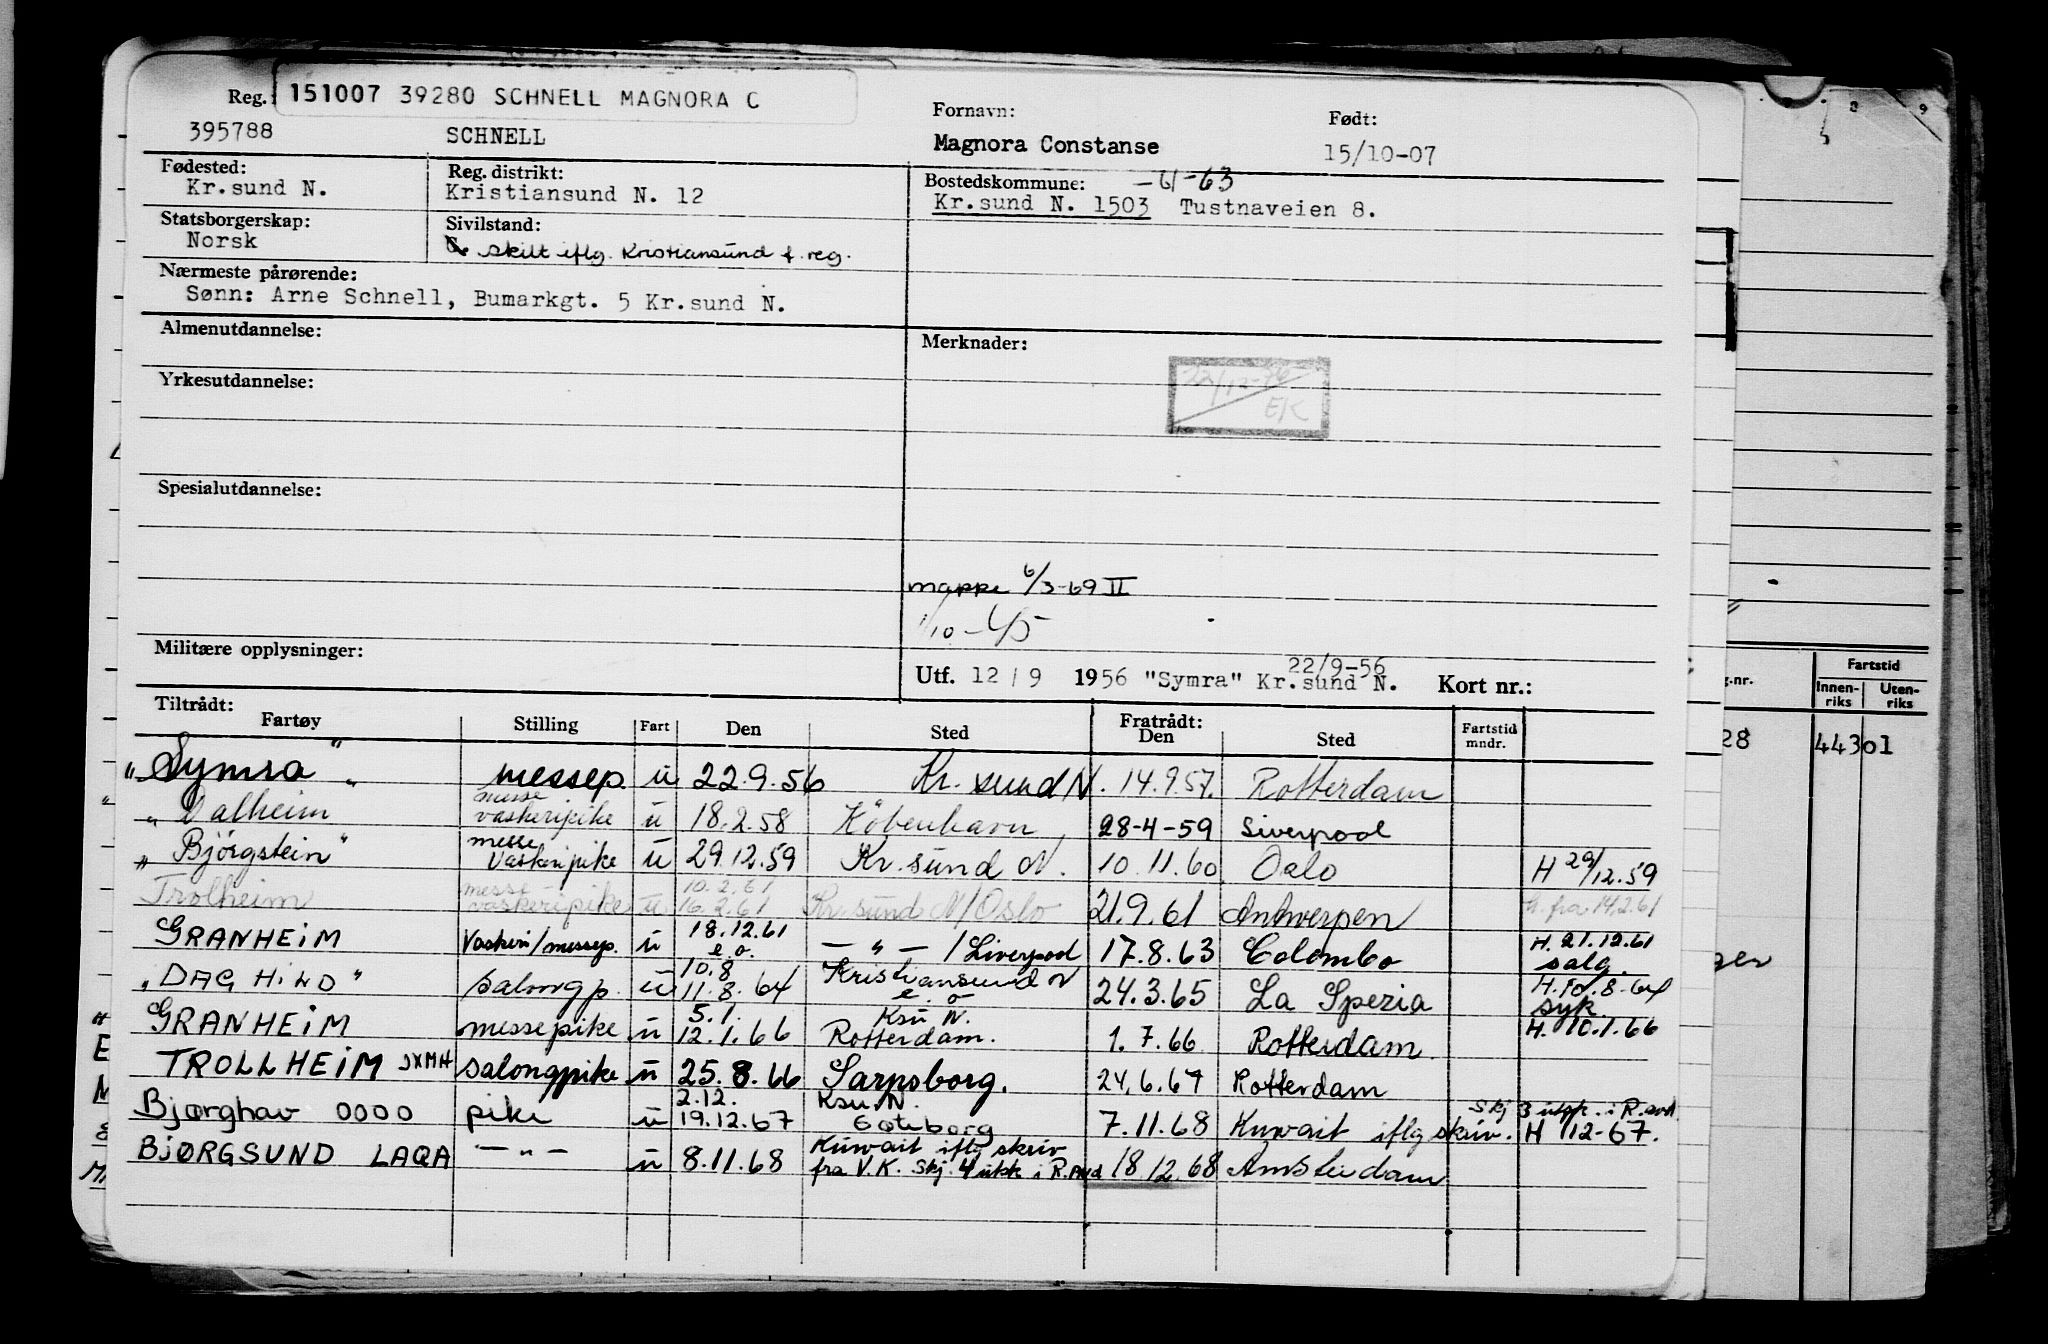 Reg. 151007 39280 SCHNELL MAGNORA C
395788 SCHNELL
Fornavn:
Magnora Constanse
Født:
15/10-07
Fødested:
Kr.sund N.
Reg. distrikt:
Kristiansund N. 12
Bostedskommune: -61-63
Kr.sund N. 1503 Tustnaveien 8.
Statsborgerskap:
Norsk
Sivilstand:
skilt iflg. Kristiansund f. reg.
Nærmeste pårørende:
Sønn: Arne Schnell, Bumarkgt. 5 Kr.sund N.
Almenutdannelse:
Merknader:
22/12-86
EK
Yrkesutdannelse:
Spesialutdannelse:
mappe 6/3-69 II
1/10-45
Militære opplysninger:
Utf. 12/9 1956 "Symra" Kr.sund N. 22/9-56 Kort nr.:
Tiltrådt:
Fartøy Stilling Fart Den Sted Fratrådt: Den Sted Fartstid mndr.
"Symra" messep. u 22.9.56 Kr. sund N. 14.9.57. Rotterdam
"Dalheim" messe vaskeripike u 18.2.58 København 28-4-59 Liverpool
"Bjørgstein" messe vaskeripike u 29.12.59 Kr. sund N. 10.11.60 Oslo H 29/12.59
Trolheim messe- vaskeripike u. 10.2.61 16.2.61 Kr. sund N/Oslo 21.9.61 Antwerpen h. fra 14.2.61
GRANHEIM Vaskeri/messep. u 18.12.61 e.o. — " — / Liverpool 17.8.63 Colombo H. 21.12.61 salg.
"DAG HILD" salongp. u 10.8 11.8.64 Kristiansund N e.o 24.3.65 La Spezia H. 10.8-64 syk.
GRANHEIM messepike u 5.1. 12.1.66 Ksu N. Rotterdam. 1.7.66 Rotterdam H. 10.1.66
TROLLHEIM JXMH salongpike u 25.8.66 Sarpsborg. 24.6.67 Rotterdam
Bjørghav OOOO pike u 2.12. 19.12.67 Ksu. N. Göteborg 7.11.68 Kuwait iflg skriv. Skj 3 utsk. i R.avd H 12-67.
BJØRGSUND LAQA — " — u 8.11.68 Kuwait iflg skriv fra V.K. Skj. 4 utsk i R.Avd 18.12.68 Amsterdam
Fartstid
g.nr. Innen-riks Uten-riks
28 443 01